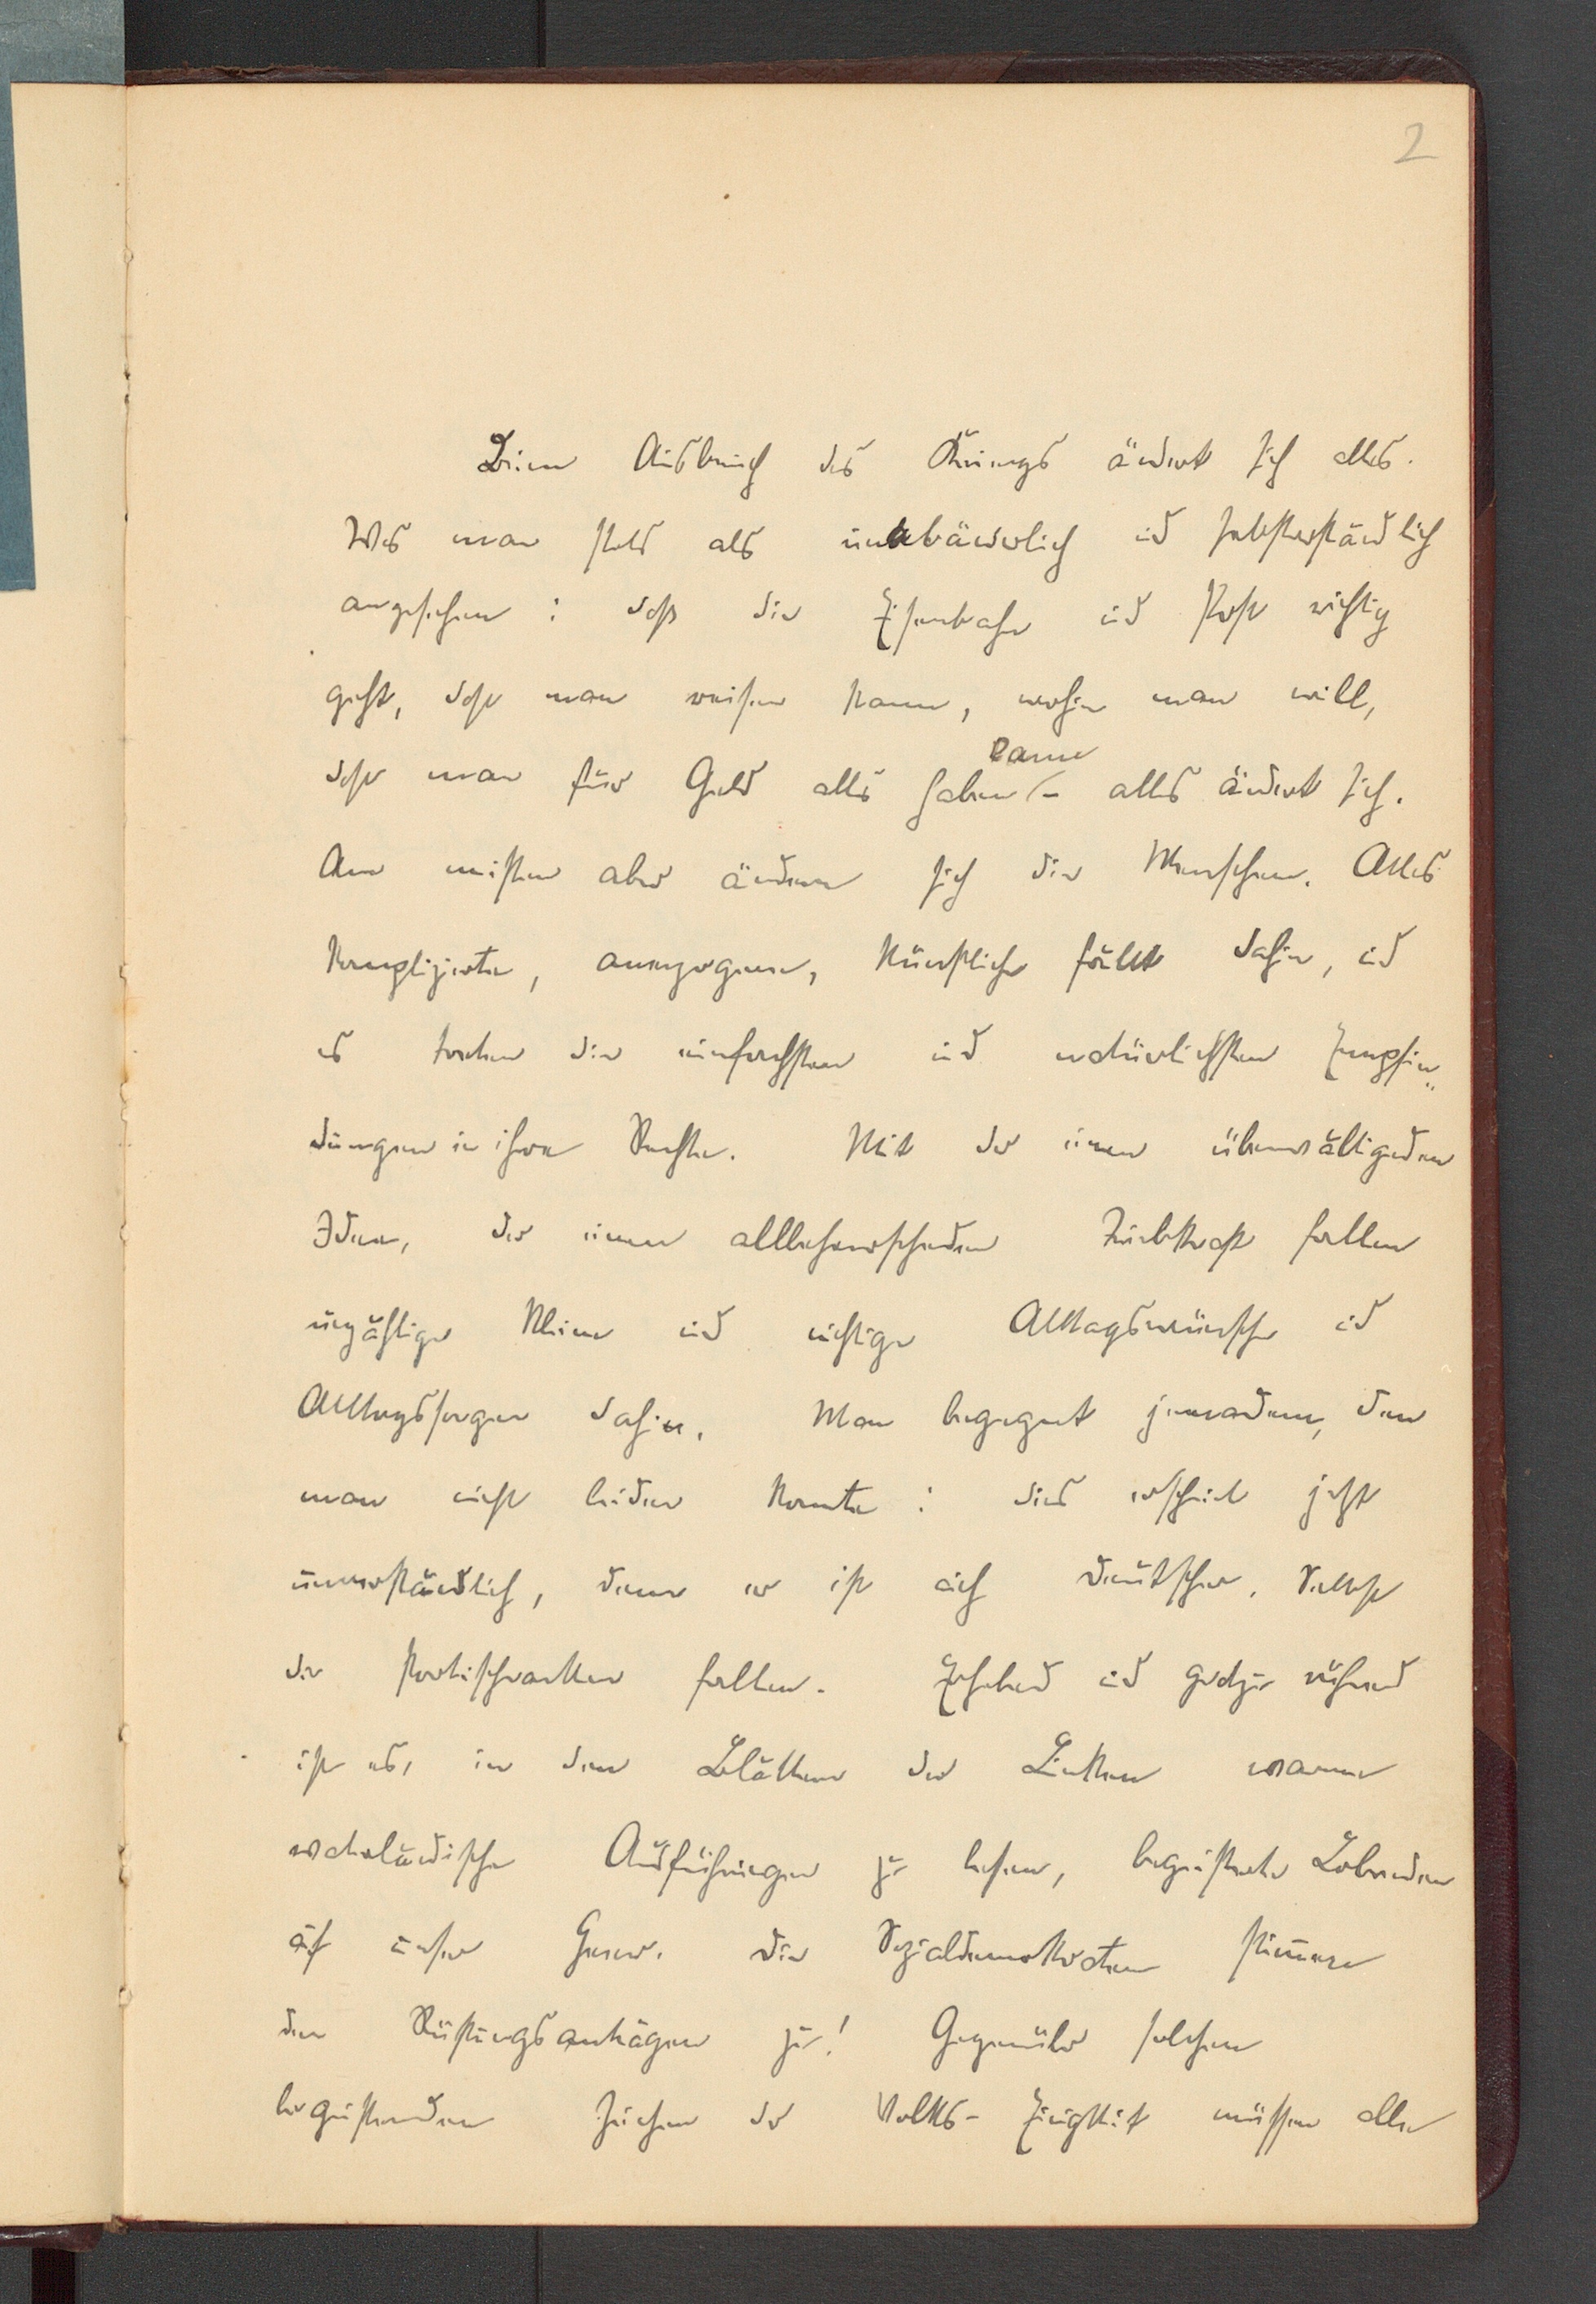 2
Beim Ausbruch des Krieges ändert sich alles.
Was man stets als unabänderlich und selbstverständlich
angesehen: dass die Eisenbahn und Post richtig
geht, dass man reisen kann, wohin man will,
kann
dass man für Geld alles haben – alles ändert sich.
Am meisten aber ändern sich die Menschen. Alles
Komplizierte, anerzogene, künstliche fällt dahin, und
es treten die einfachsten und natürlichsten Empfin„
dungen in ihre Rechte. Mit der einen überwältigenden
Idee, der einen allbeherrschenden Triebkraft fallen
unzählige kleine und nichtige Alltagswünsche und
Alltagssorgen dahin. Man begegnet jemandem, den
man nicht leiden konnte: dies erscheint jetzt
unverständlich, denn er ist auch Deutscher. Selbst
die Parteischranken fallen. Erhebend und geradezu rührend
ist es, in den Blättern der Linken warme
vaterländische Ausführungen zu lesen, begeisterte Lobreden
auf unser Heer. Die Sozialdemokraten stimmen
den Rüstungsanträgen zu! Gegenüber solchen
begeisternden Zeichen der Volks-Einigkeit müssen alle